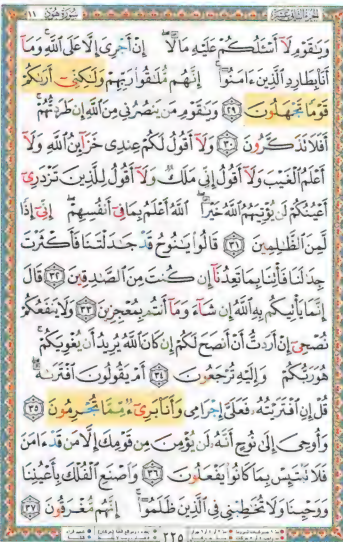 سُورَةُ هُودٍ ١١
وَيَٰقَوْمِ لَآ أَسْـَٔلُكُمْ عَلَيْهِ مَالًا ۖ إِنْ أَجْرِىَ إِلَّا عَلَى ٱللَّهِ ۚ وَمَآ
أَنَا۠ بِطَارِدِ ٱلَّذِينَ ءَامَنُوٓا۟ ۚ إِنَّهُم مُّلَٰقُوا۟ رَبِّهِمْ وَلَٰكِنِّىٓ أَرَىٰكُمْ
قَوْمًا تَجْهَلُونَ ٢٩ وَيَٰقَوْمِ مَن يَنصُرُنِى مِنَ ٱللَّهِ إِن طَرَدتُّهُمْ ۚ
أَفَلَا تَذَكَّرُونَ ٣٠ وَلَآ أَقُولُ لَكُمْ عِندِى خَزَآئِنُ ٱللَّهِ وَلَآ
أَعْلَمُ ٱلْغَيْبَ وَلَآ أَقُولُ إِنِّى مَلَكٌ وَلَآ أَقُولُ لِلَّذِينَ تَزْدَرِىٓ
أَعْيُنُكُمْ لَن يُؤْتِيَهُمُ ٱللَّهُ خَيْرًا ۖ ٱللَّهُ أَعْلَمُ بِمَا فِىٓ أَنفُسِهِمْ ۖ إِنِّىٓ إِذًا
لَّمِنَ ٱلظَّٰلِمِينَ ٣١ قَالُوا۟ يَٰنُوحُ قَدْ جَٰدَلْتَنَا فَأَكْثَرْتَ
جِدَٰلَنَا فَأْتِنَا بِمَا تَعِدُنَآ إِن كُنتَ مِنَ ٱلصَّٰدِقِينَ ٣٢ قَالَ
إِنَّمَا يَأْتِيكُم بِهِ ٱللَّهُ إِن شَآءَ وَمَآ أَنتُم بِمُعْجِزِينَ ٣٣ وَلَا يَنفَعُكُمْ
نُصْحِىٓ إِنْ أَرَدتُّ أَنْ أَنصَحَ لَكُمْ إِن كَانَ ٱللَّهُ يُرِيدُ أَن يُغْوِيَكُمْ ۚ
هُوَ رَبُّكُمْ وَإِلَيْهِ تُرْجَعُونَ ٣٤ أَمْ يَقُولُونَ ٱفْتَرَىٰهُ ۖ
قُلْ إِنِ ٱفْتَرَيْتُهُۥ فَعَلَىَّ إِجْرَامِى وَأَنَا۠ بَرِىٓءٌ مِّمَّا تُجْرِمُونَ ٣٥
وَأُوحِىَ إِلَىٰ نُوحٍ أَنَّهُۥ لَن يُؤْمِنَ مِن قَوْمِكَ إِلَّا مَن قَدْ ءَامَنَ
فَلَا تَبْتَئِسْ بِمَا كَانُوا۟ يَفْعَلُونَ ٣٦ وَٱصْنَعِ ٱلْفُلْكَ بِأَعْيُنِنَا
وَوَحْيِنَا وَلَا تُخَٰطِبْنِى فِى ٱلَّذِينَ ظَلَمُوٓا۟ ۚ إِنَّهُم مُّغْرَقُونَ ٣٧
٢٢٥